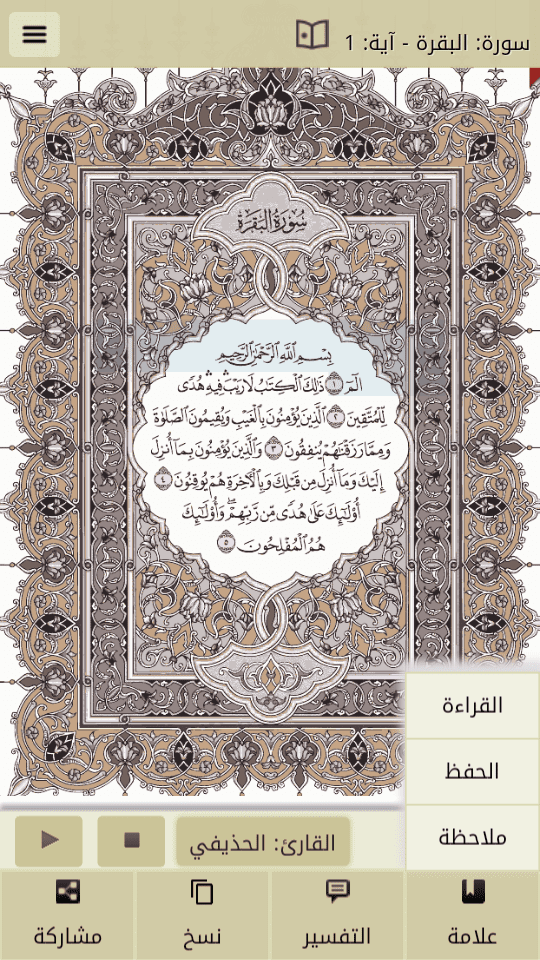 سورة: البقرة - آية: 1
سُورَةُ البَقَرَةِ
بِسْمِ ٱللَّهِ ٱلرَّحْمَٰنِ ٱلرَّحِيمِ
الٓمٓ ١ ذَٰلِكَ ٱلْكِتَٰبُ لَا رَيْبَ ۛ فِيهِ ۛ هُدًى
لِّلْمُتَّقِينَ ٢ ٱلَّذِينَ يُؤْمِنُونَ بِٱلْغَيْبِ وَيُقِيمُونَ ٱلصَّلَوٰةَ
وَمِمَّا رَزَقْنَٰهُمْ يُنفِقُونَ ٣ وَٱلَّذِينَ يُؤْمِنُونَ بِمَآ أُنزِلَ
إِلَيْكَ وَمَآ أُنزِلَ مِن قَبْلِكَ وَبِٱلْءَاخِرَةِ هُمْ يُوقِنُونَ ٤
أُو۟لَٰٓئِكَ عَلَىٰ هُدًى مِّن رَّبِّهِمْ ۖ وَأُو۟لَٰٓئِكَ
هُمُ ٱلْمُفْلِحُونَ ٥
القراءة
الحفظ
ملاحظة
القارئ: الحذيفي
علامة
التفسير
نسخ
مشاركة